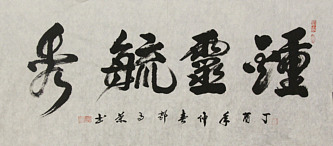 鍾靈毓秀
丁酉年仲春郭子荣书